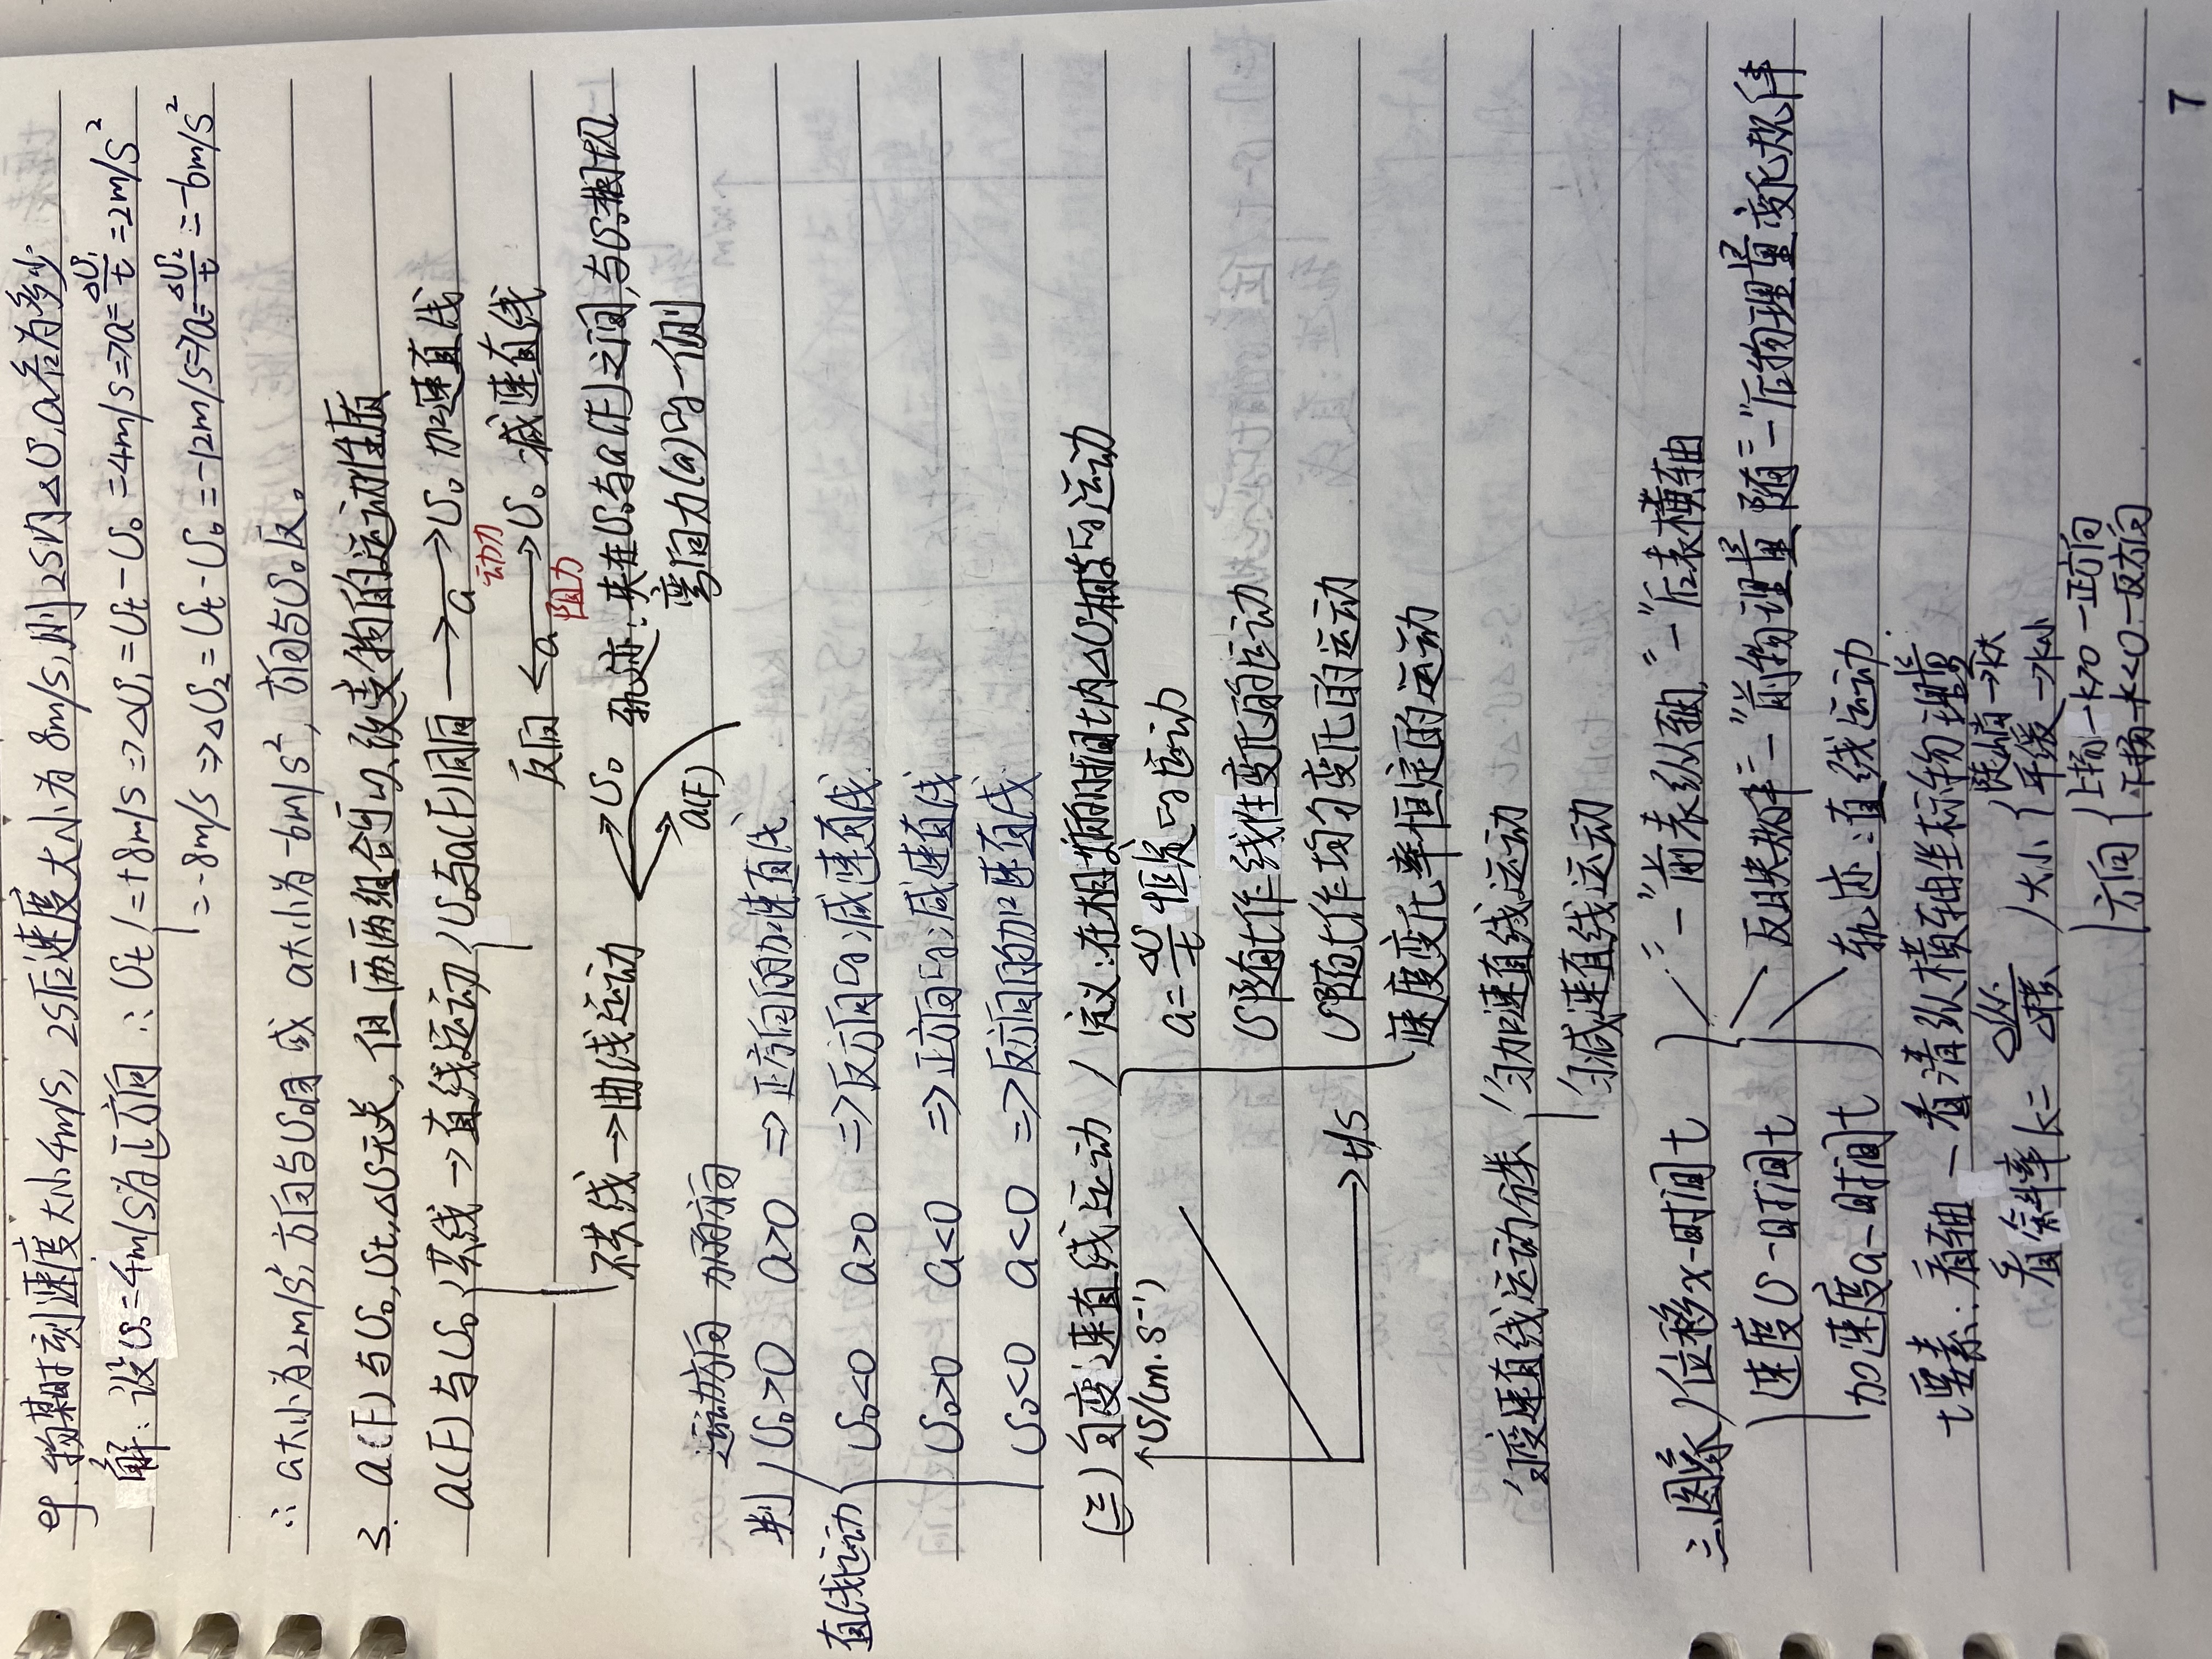 eg. 物某时刻速度大小4m/s, 2s后速度大小为8m/s,则2s内△v,a各为多少
解:设v₀=4m/s为正方向 ∴ vt =+8m/s⇒△v₁=vt-v₀=4m/s⇒a=△v₁/t=2m/s²
=-8m/s⇒△v₂=vt-v₀=-12m/s⇒a=△v₂/t=-6m/s²
∴ a大小为2m/s², 方向与v₀同 或 a大小为-6m/s², 方向与v₀反。
3. a(F)与v₀,vt,△v无关, 但两两组合可以改变物的运动性质
a(F)与v₀ 共线→直线运动 v₀与a(F)同向 →a →v₀ 加速直线
动力
反向 ←a →v₀ 减速直线
阻力
不共线→曲线运动 v₀ a(F) 轨迹:夹在v₀与a(F)之间,与v₀相切
弯向力(a)的一侧
运动方向 加速方向
判 v₀>0 a>0 ⇒正方向的加速直线
直线运动 v₀<0 a>0 ⇒反方向的减速直线
v₀>0 a<0 ⇒正方向的减速直线
v₀<0 a<0 ⇒反方向的加速直线
(二)匀变速直线运动 定义:在相same时间t内△v相等的运动
v/(m·s⁻¹) a=△v/t 恒定的运动
v随t作线性变化的运动
t/s v随t作均匀变化的运动
速度变化率恒定的运动
匀变速直线运动分类 匀加速直线运动
匀减速直线运动
三.图象 位移x-时间t “-”前表纵轴,“-”后表横轴
速度v-时间t 反映规律=“-”前物理量随=“-”后物理量变化规律
加速度a-时间t 轨迹:直线运动
七要素:看轴 — 看清纵横轴坐标物理量
看斜率k=△纵/△横 大小 陡峭→k大
平缓→k小
方向 上扬—k>0—正方向
下掉—k<0—反方向
7